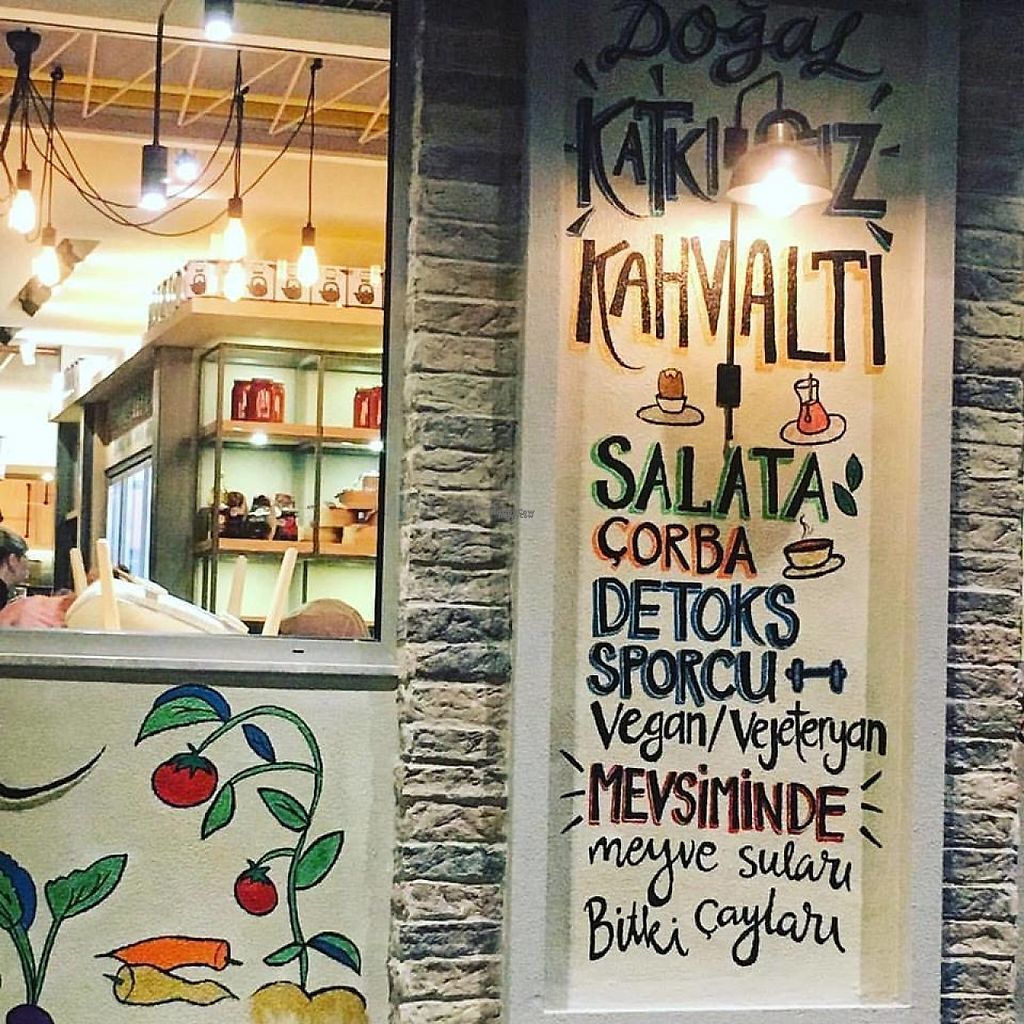 Doğal
KATKISIZ
KAHVALTI
SALATA
ÇORBA
DETOKS
SPORCU
Vegan/Vejeteryan
MEVSİMİNDE
meyve suları
Bitki Çayları